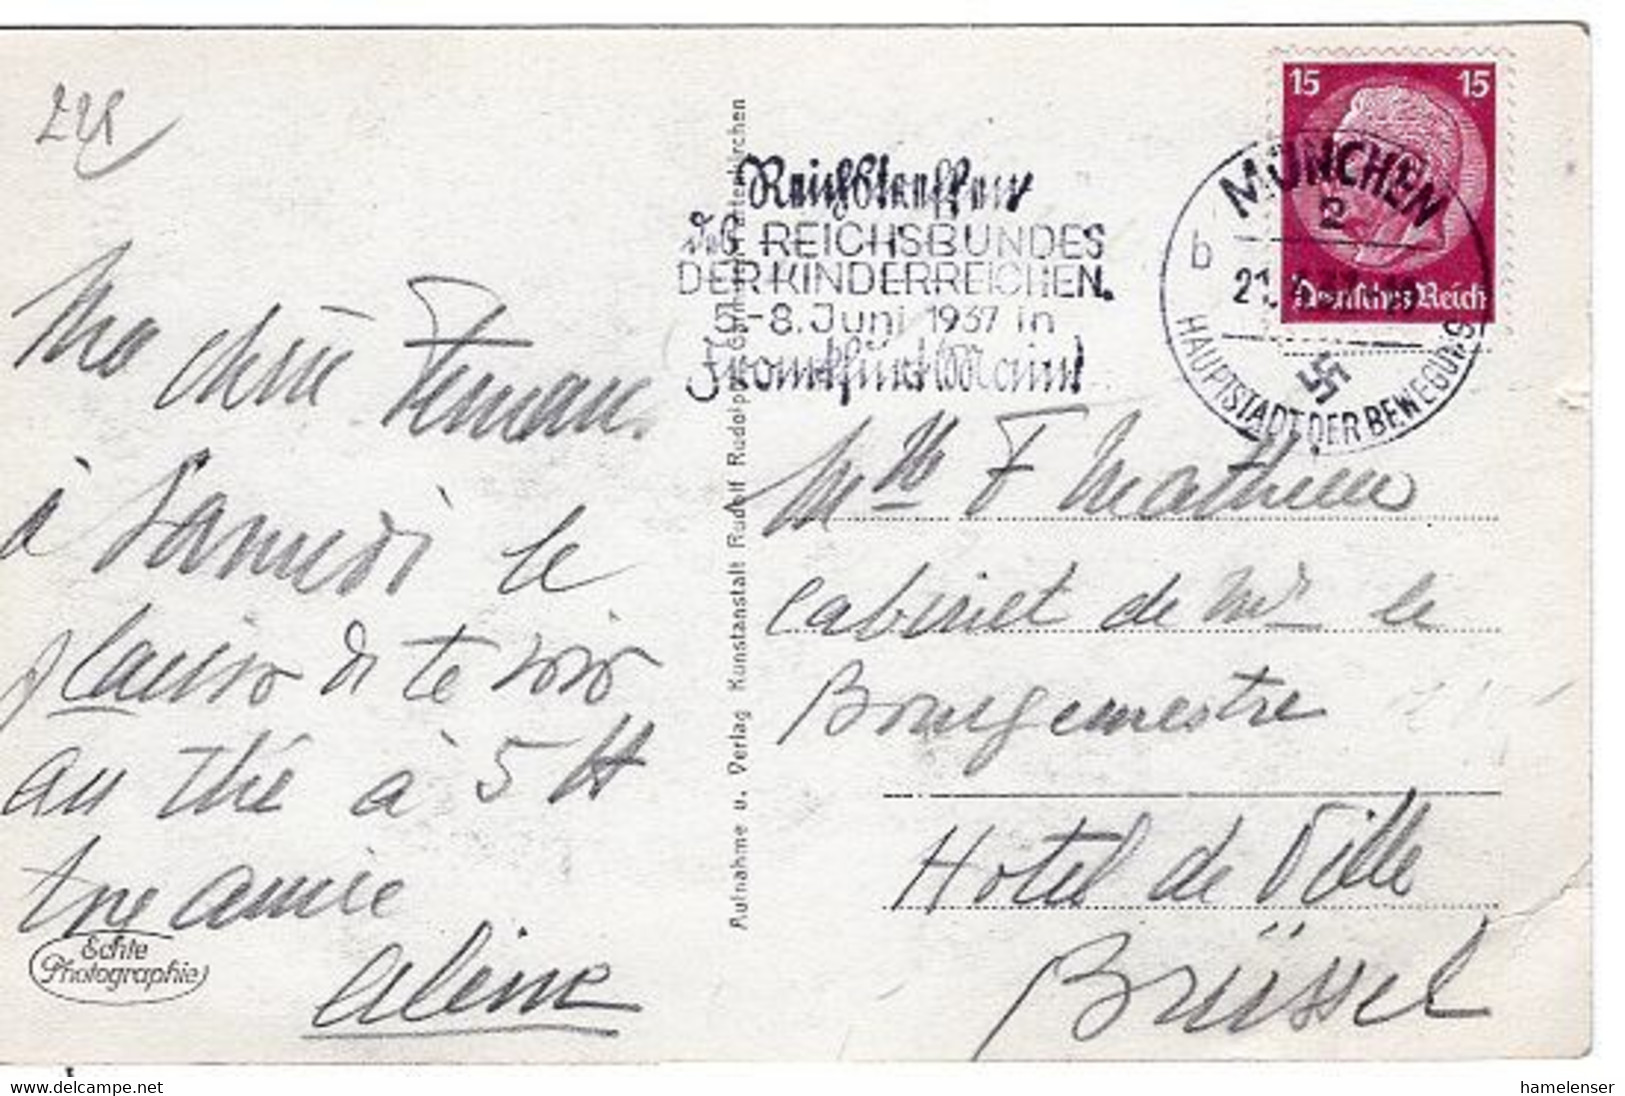 Ma chérie
à Samedi le
plaisir de te voir
au thé à 5 H
tre amie
Aline
Echte
Photographie
Aufnahme u. Verlag Kunstanstalt Rudolf Rudolphi
Reichstreffen
des REICHSBUNDES
DER KINDERREICHEN.
5-8. Juni 1937 in
Frankfurt Main
MÜNCHEN
2
b
21.
HAUPTSTADT DER BEWEGUNG
15 15
Deutsches Reich
Mlle F Mathieu
Cabinet de Mr le
Bourgemestre
Hotel de Ville
Brüssel
www.delcampe.net
hamelenser